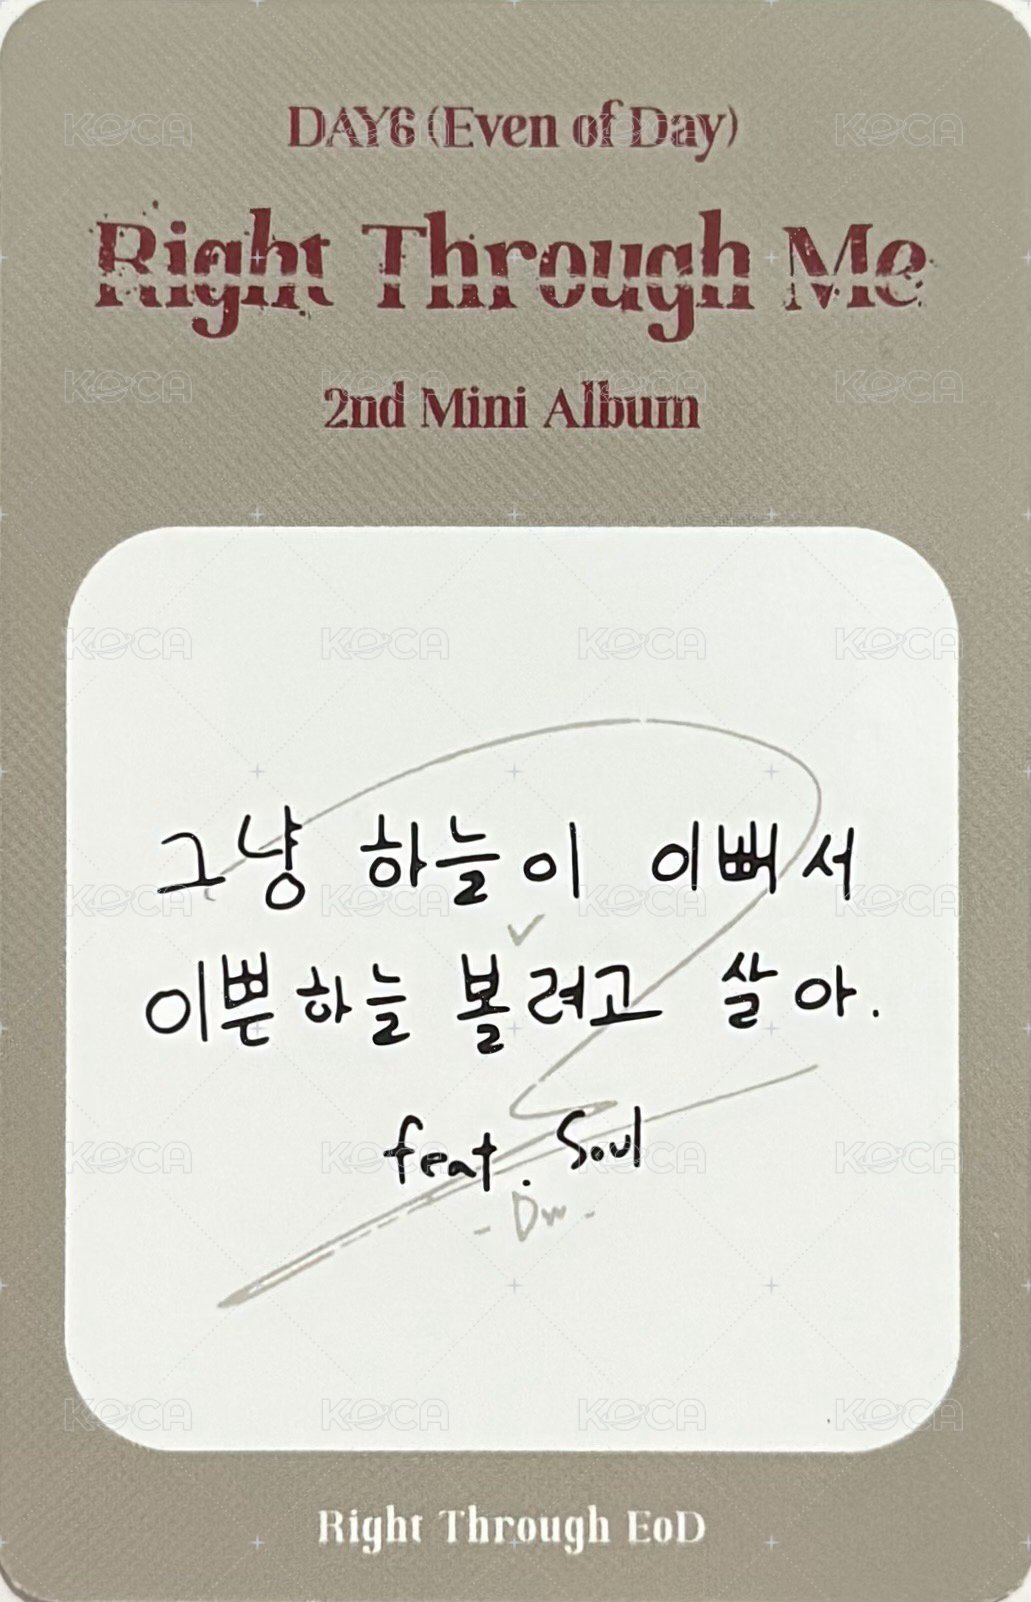 DAY6 (Even of Day)
Right Through Me
2nd Mini Album
그냥 하늘이 이뻐서
이쁜하늘 볼려고 살아.
feat. Soul
- Dw -
Right Through EoD
KOCA